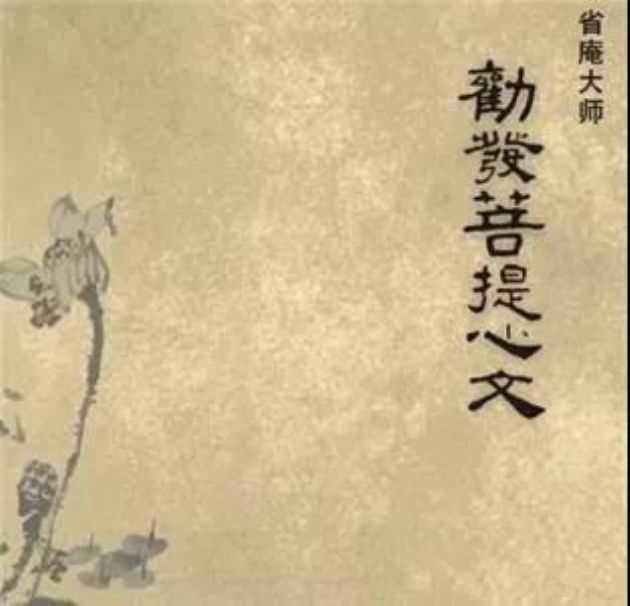 省庵大师
勸發菩提心文